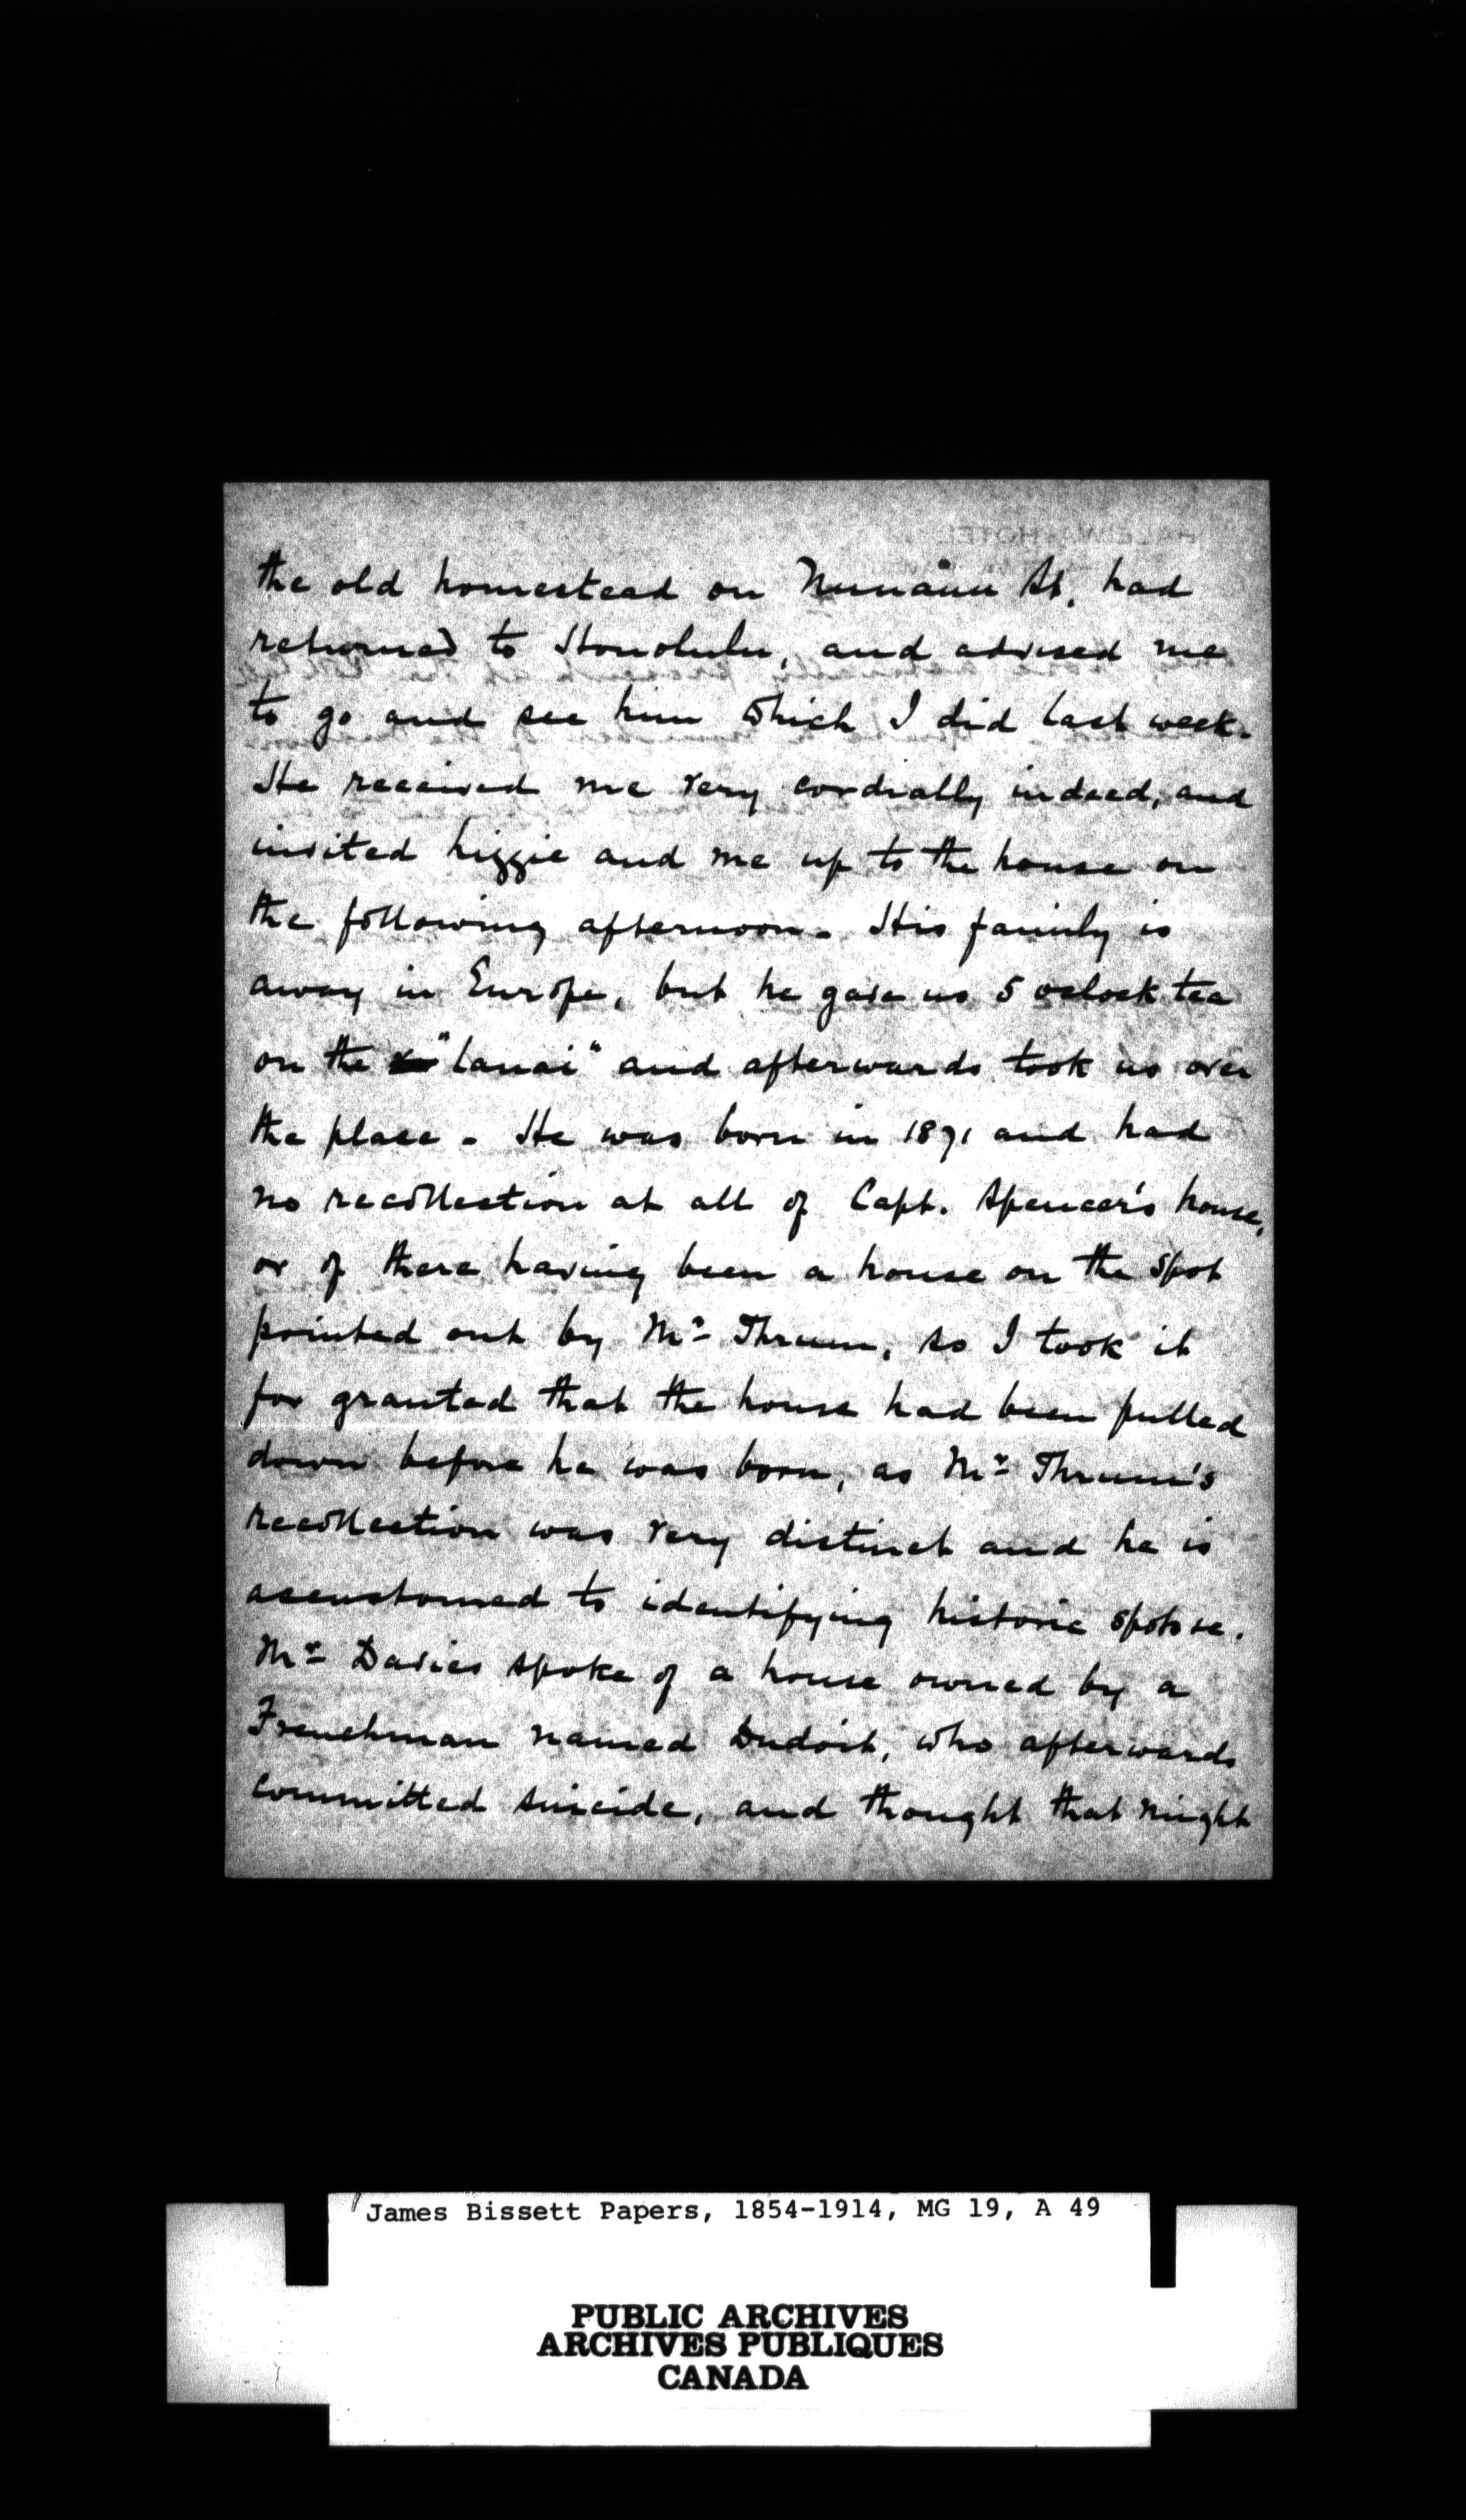 the old homestead on Nuuanu St. had
returned to Honolulu, and advised me
to go and see him which I did last week.
He received me very cordially indeed, and
invited Lizzie and me up to the house on
the following afternoon. His family is
away in Europe, but he gave us 5 oclock tea
on the "lanai" and afterwards took us over
the place. He was born in 1871 and had
no recollection at all of Capt. Spencer's house,
or of there having been a house on the spot
pointed out by Mr Thrum, so I took it
for granted that the house had been pulled
down before he was born, as Mr Thrum's
recollection was very distinct and he is
accustomed to identifying historic spots
Mr Davies spoke of a house owned by a
Frenchman named Dudoit, who afterwards
committed suicide, and thought that might
James Bissett Papers, 1854-1914, MG 19, A 49
PUBLIC ARCHIVES
ARCHIVES PUBLIQUES
CANADA